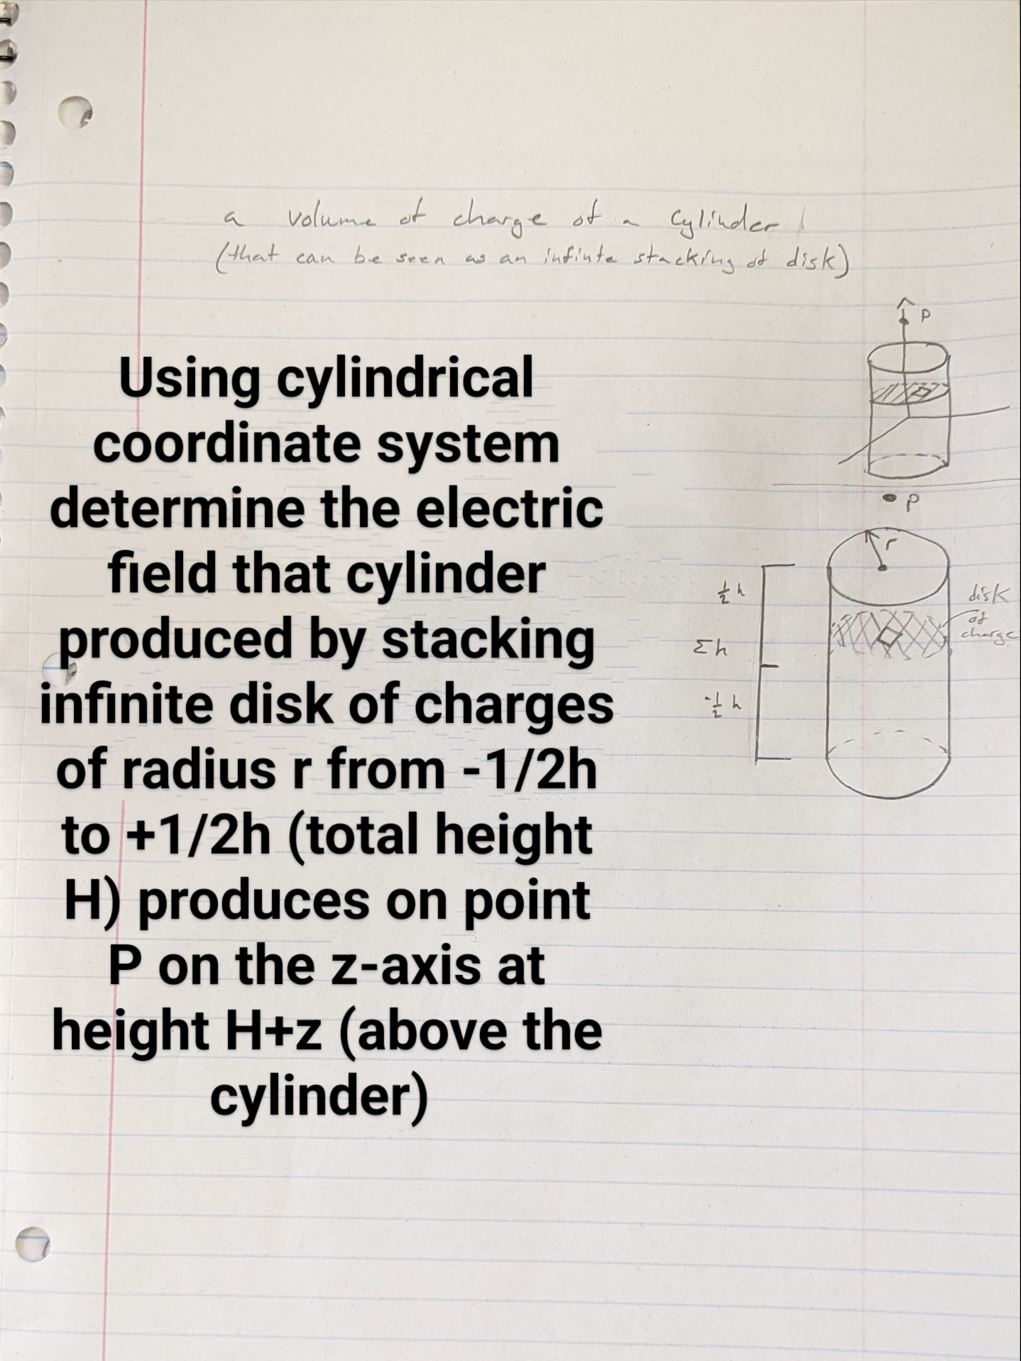 a volume of charge of a cylinder
(that can be seen as an infinte stacking of disk)
P
Using cylindrical
coordinate system
determine the electric
field that cylinder
produced by stacking
infinite disk of charges
of radius r from -1/2h
to +1/2h (total height
H) produces on point
P on the z-axis at
height H+z (above the
cylinder)
P
r
½ h
disk
of
charge
Σh
-½ h